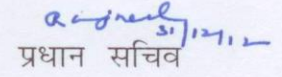 31/12/12
प्रधान सचिव